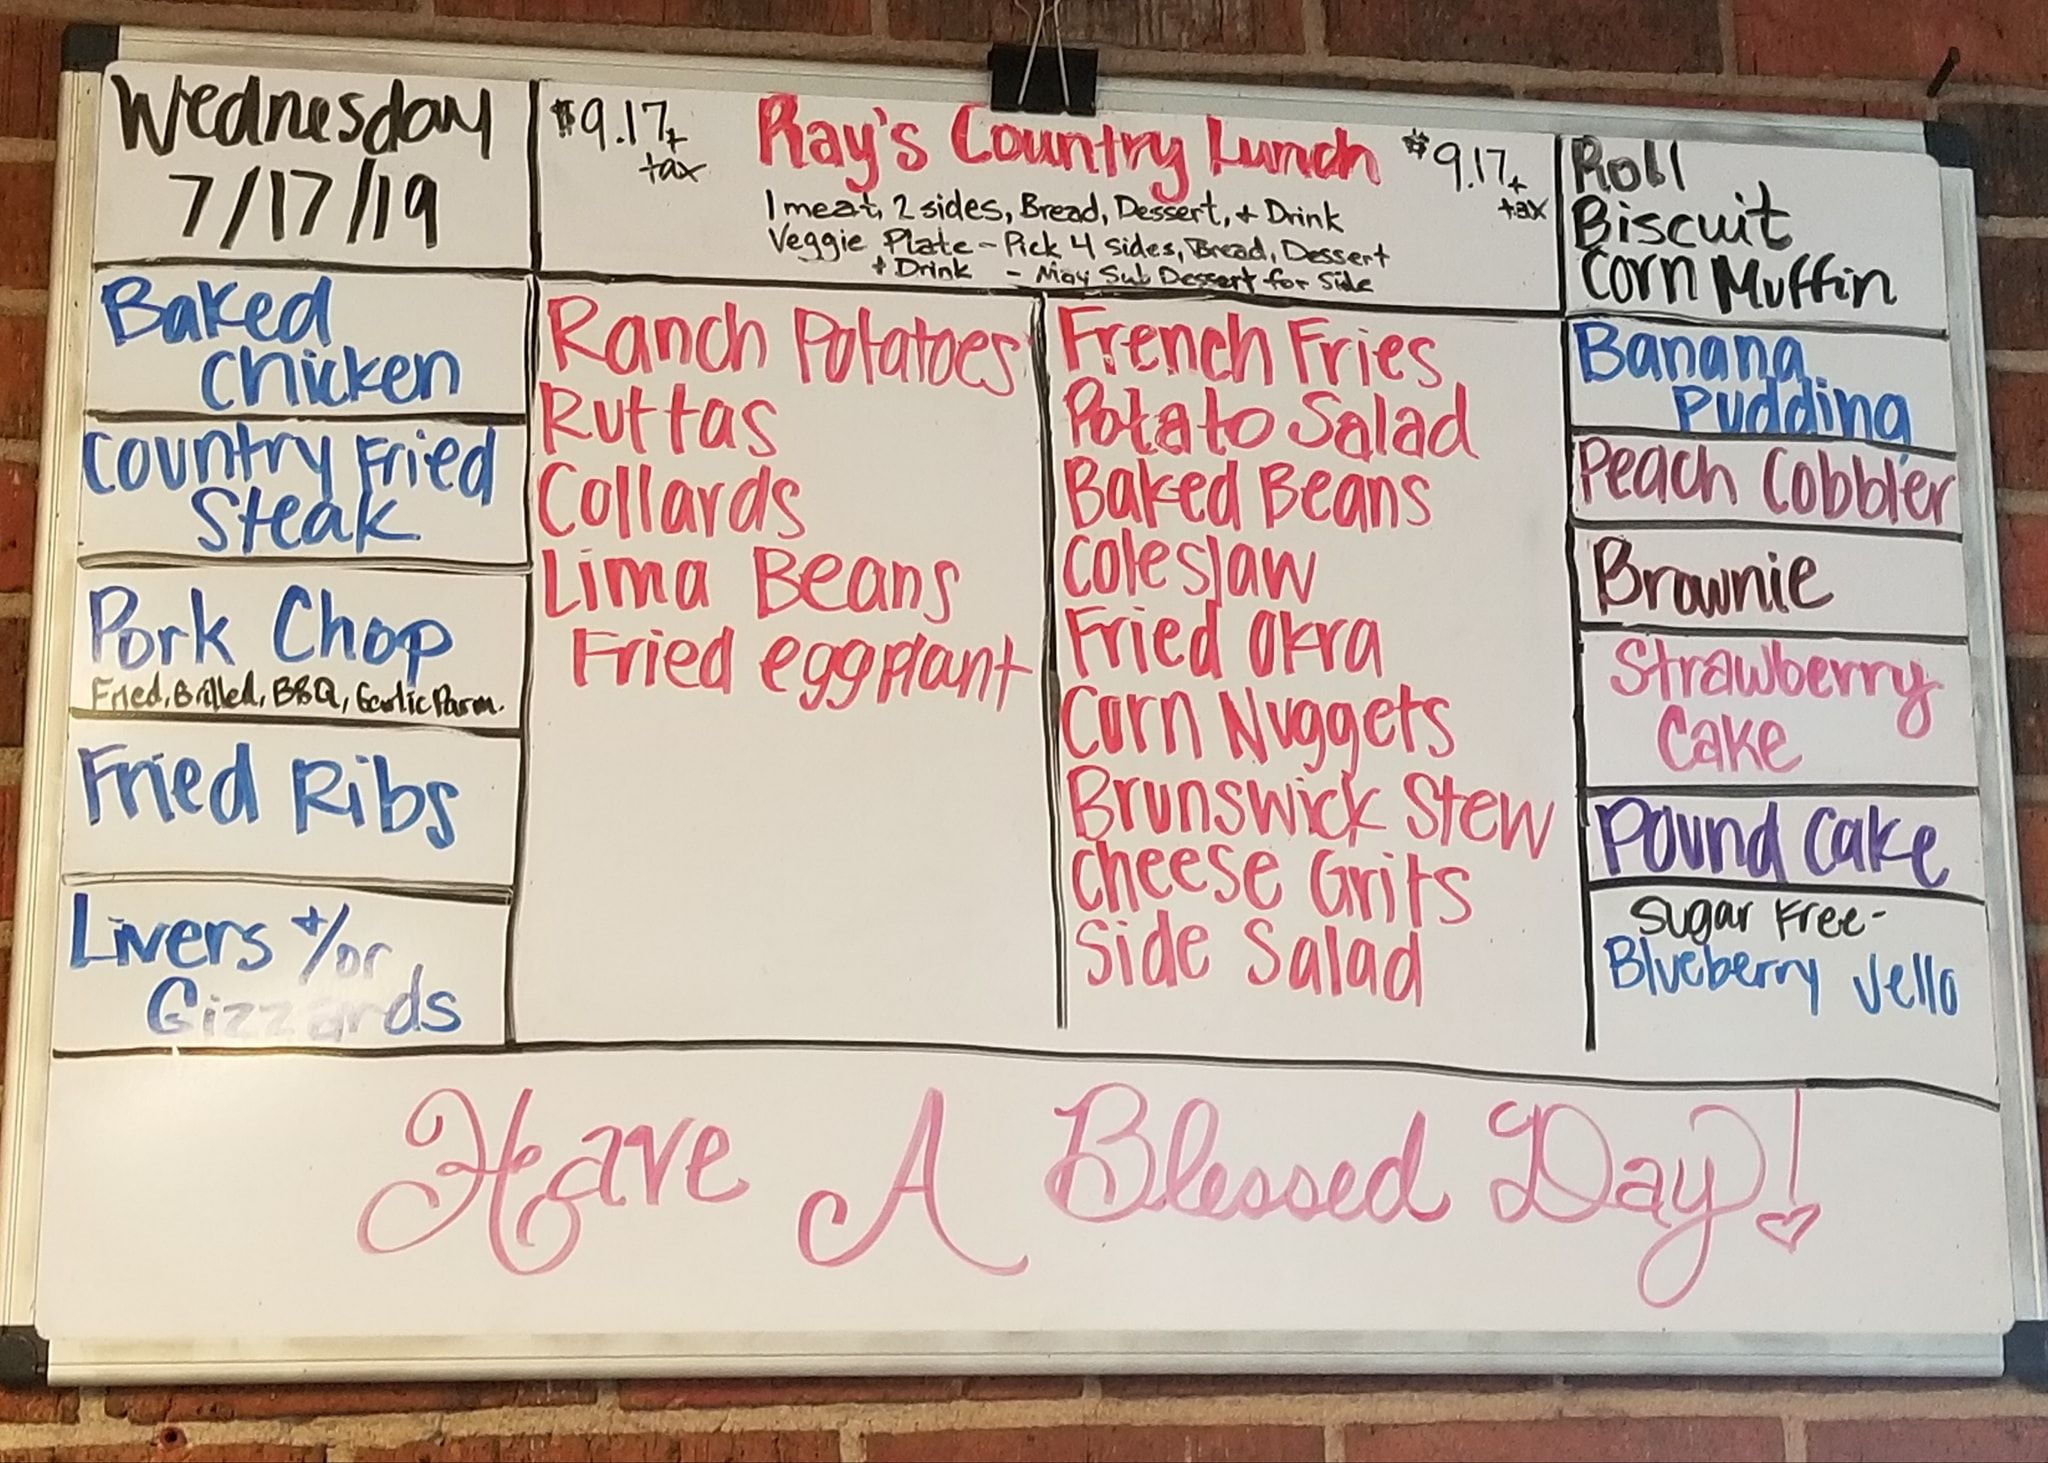 Wednesday
7/17/19
$9.17+
tax
Ray's Country Lunch
$9.17+
tax
1 meat, 2 sides, Bread, Dessert, + Drink
Veggie Plate - Pick 4 sides, Bread, Dessert
+ Drink - May Sub Dessert for Side
Roll
Biscuit
Corn Muffin
Baked
Chicken
Country Fried
Steak
Pork Chop
Fried, Brilled, BBQ, Garlic Parm.
Fried Ribs
Livers +/or
Gizzards
Ranch Potatoes
Ruttas
Collards
Lima Beans
Fried eggplant
French Fries
Potato Salad
Baked Beans
Coleslaw
Fried Okra
Corn Nuggets
Brunswick Stew
Cheese Grits
Side Salad
Banana
Pudding
Peach Cobbler
Brownie
Strawberry
Cake
Pound Cake
Sugar Free-
Blueberry Jello
Have A Blessed Day!